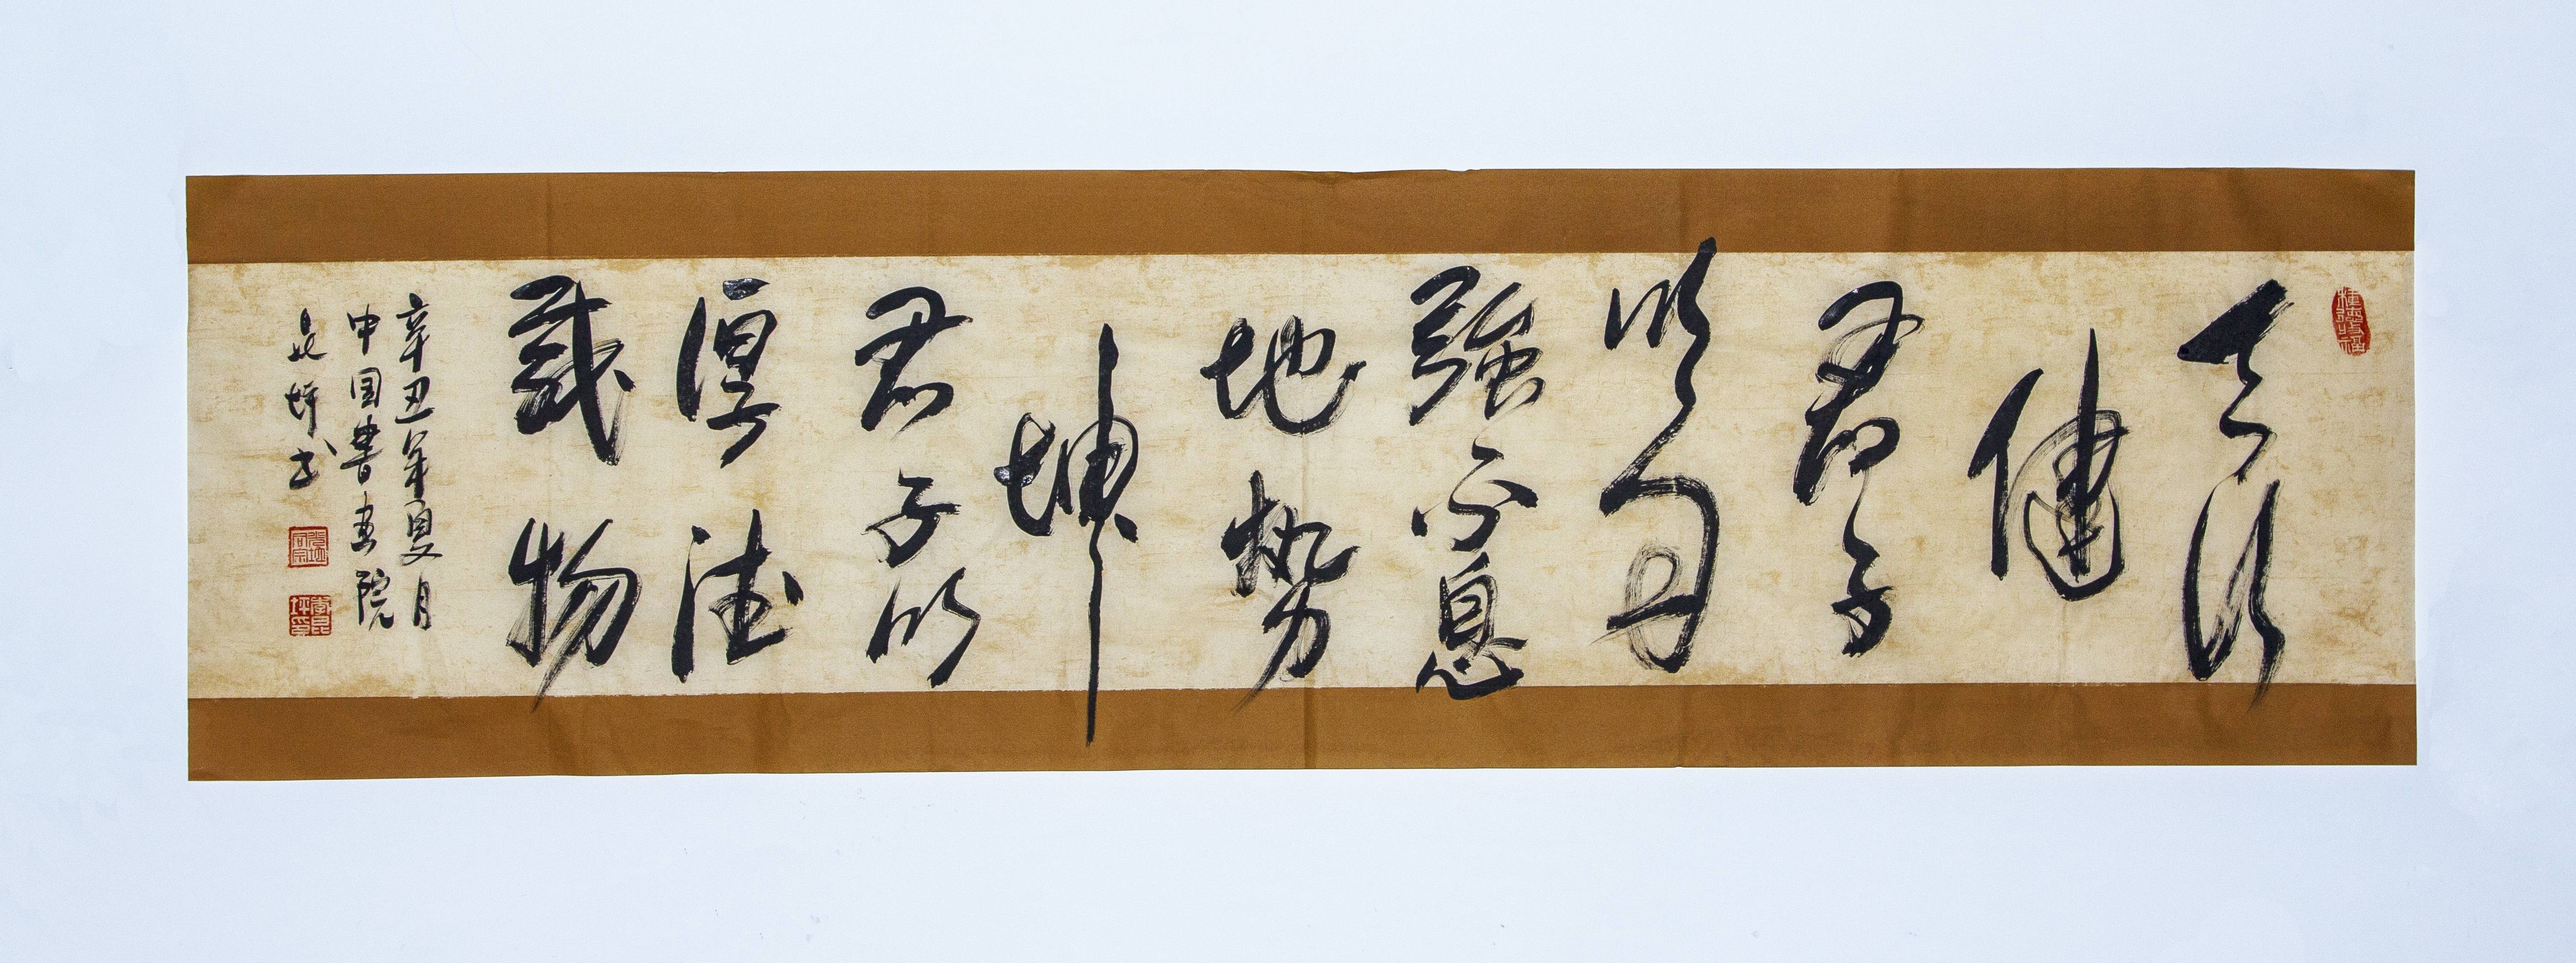 天行
健
君子
以自
強不息
地勢
坤
君子以
厚德
載物
辛丑年夏月
中国書画院
昆坪书